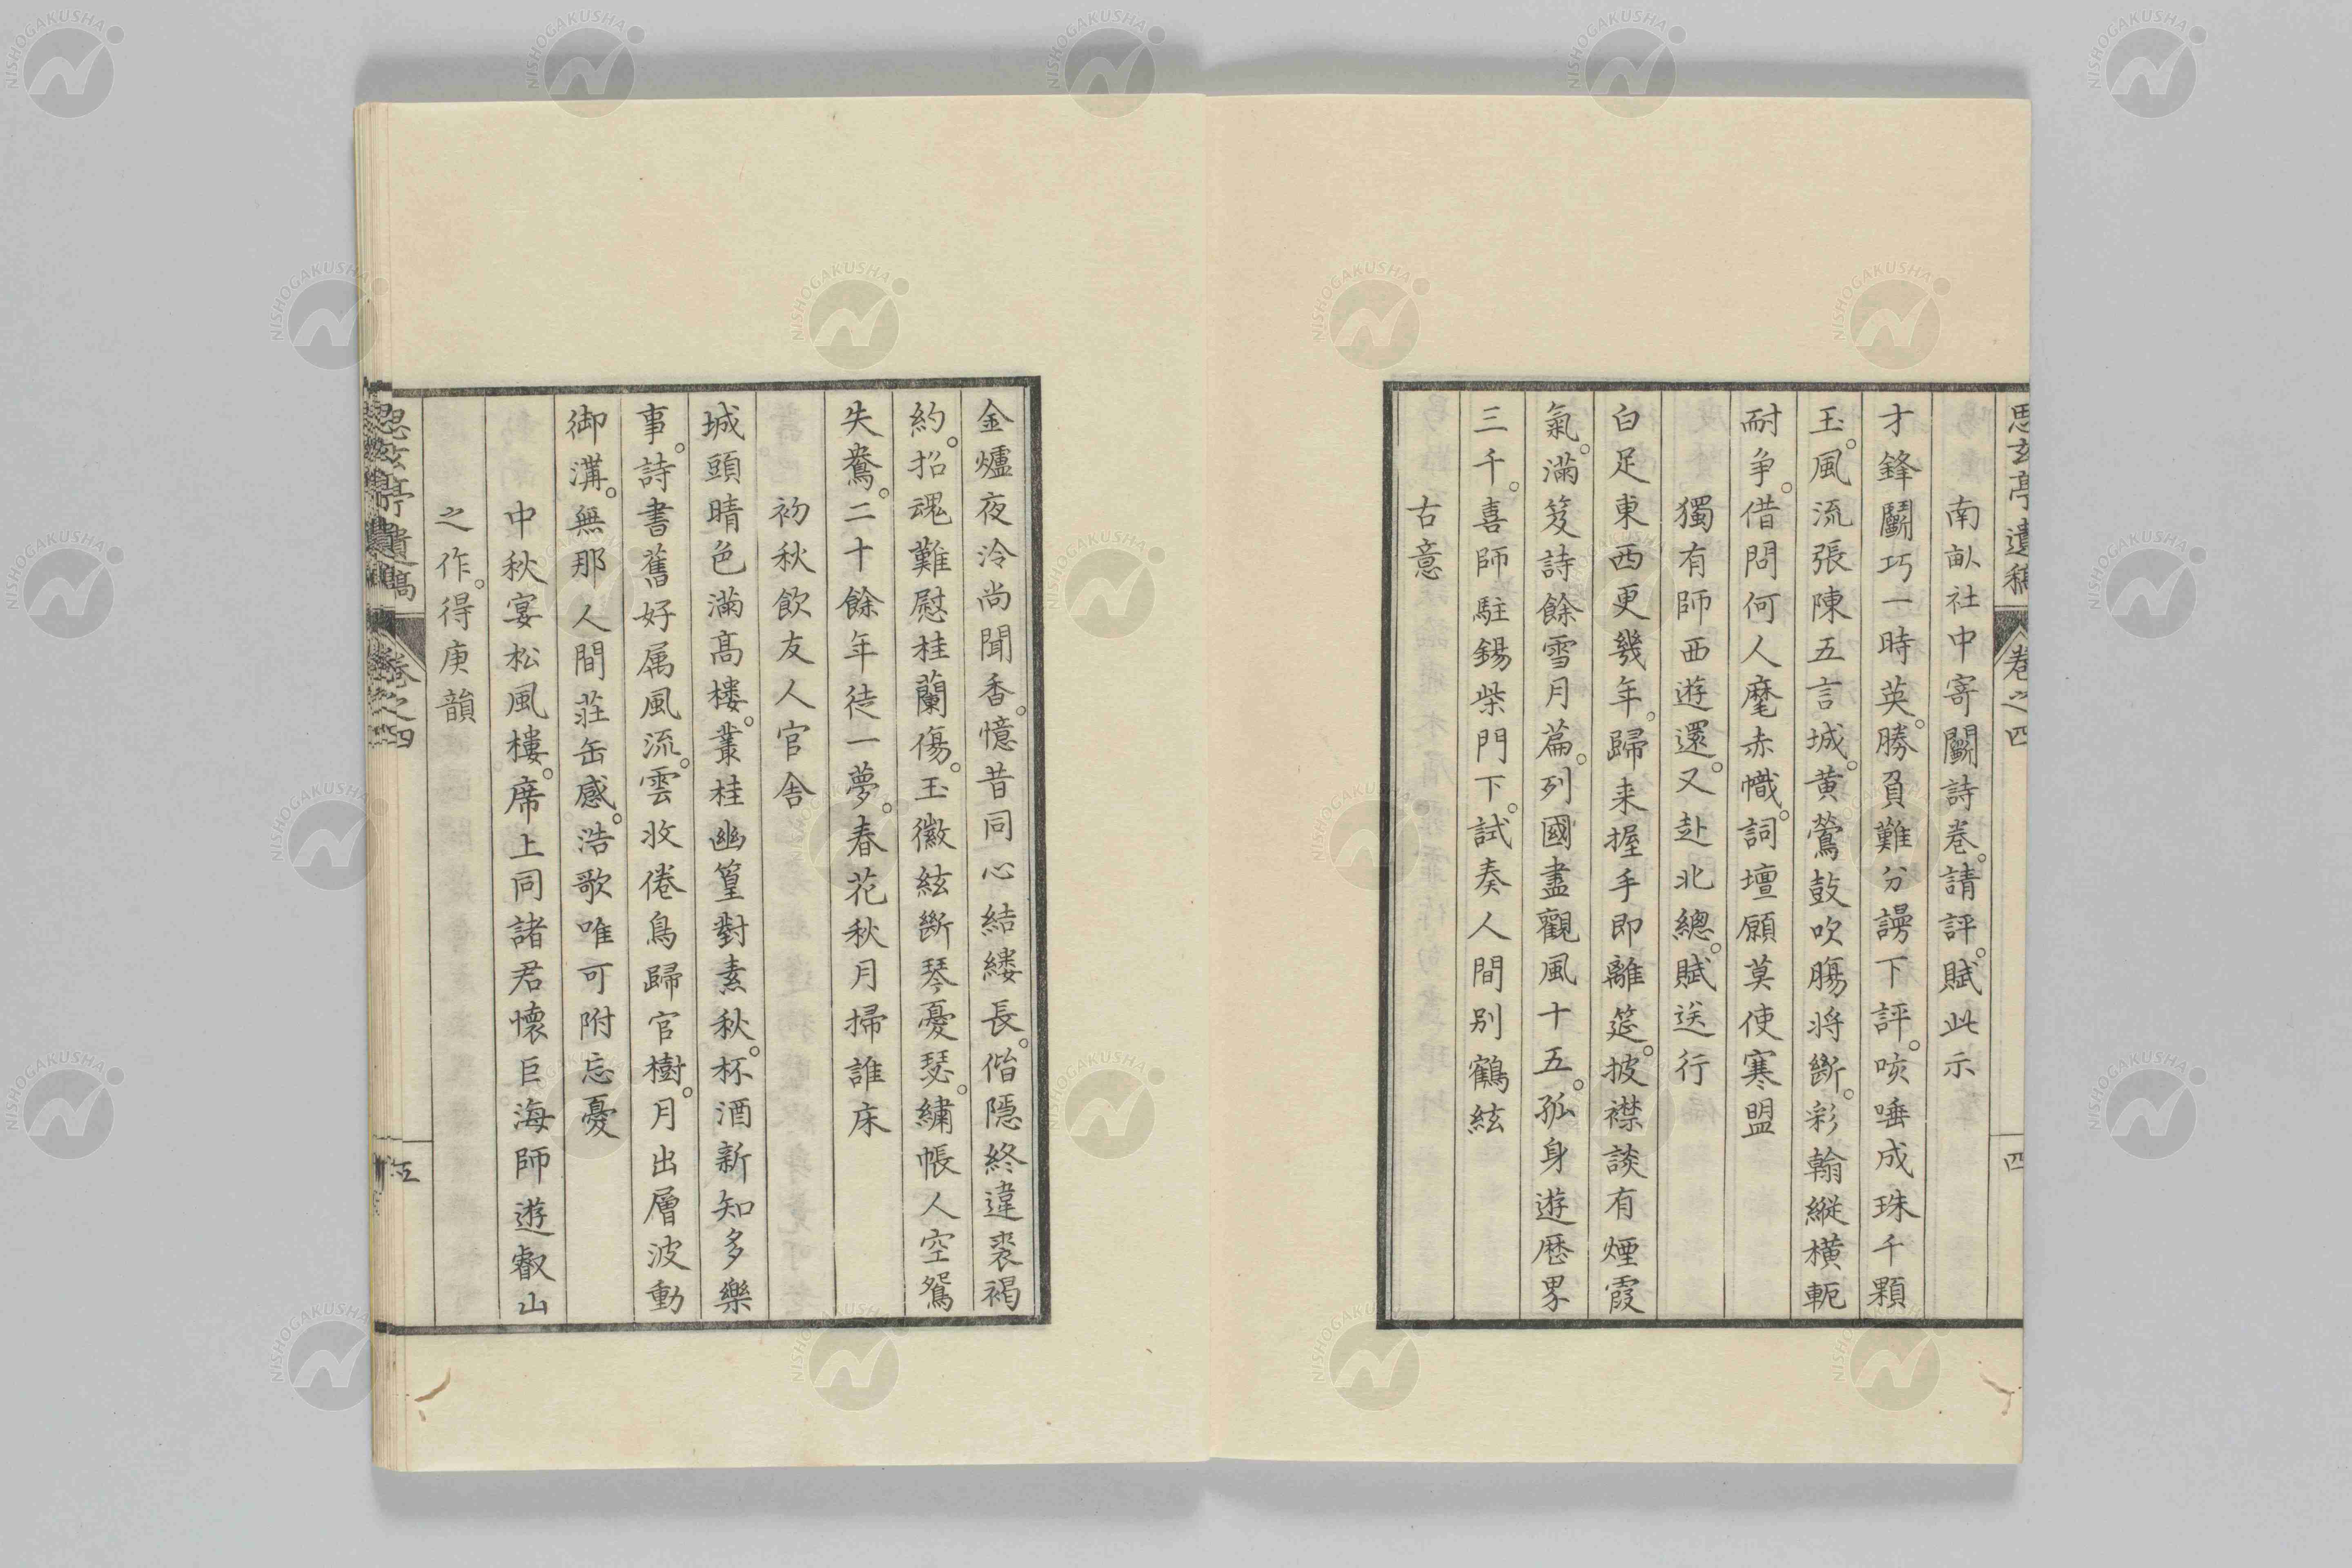 思玄亭遺稿 卷之四 四
南畝社中寄鬭詩卷。請評。賦此示
才鋒鬭巧一時英。勝負難分謾下評。咳唾成珠千顆
玉。風流張陳五言城。黄鶯鼓吹腸将斷。彩翰縱横軛
耐争。借問何人麾赤幟。詞壇願莫使寒盟
獨有師西遊還。又赴北總。賦送行
白足東西更幾年。歸来握手即離筵。披襟談有煙霞
氣。滿笈詩餘雪月篇。列國盡觀風十五。孤身遊歴界
三千。喜師駐錫柴門下。試奏人間別鶴絃
古意
金爐夜冷尚聞香。憶昔同心結縷長。偕隱終違裘褐
約。招魂難慰桂蘭傷。玉徽絃斷琴憂瑟。繡帳人空鴛
失鴦。二十餘年徒一夢。春花秋月掃誰床
初秋飲友人官舎
城頭晴色滿髙樓。叢桂幽篁對素秋。杯酒新知多樂
事。詩書舊好属風流。雲收倦鳥歸官樹。月出層波動
御溝。無那人間莊缶感。浩歌唯可附忘憂
中秋宴松風樓。席上同諸君懐巨海師遊叡山
之作。得庚韻
思玄亭遺稿 卷之四 五